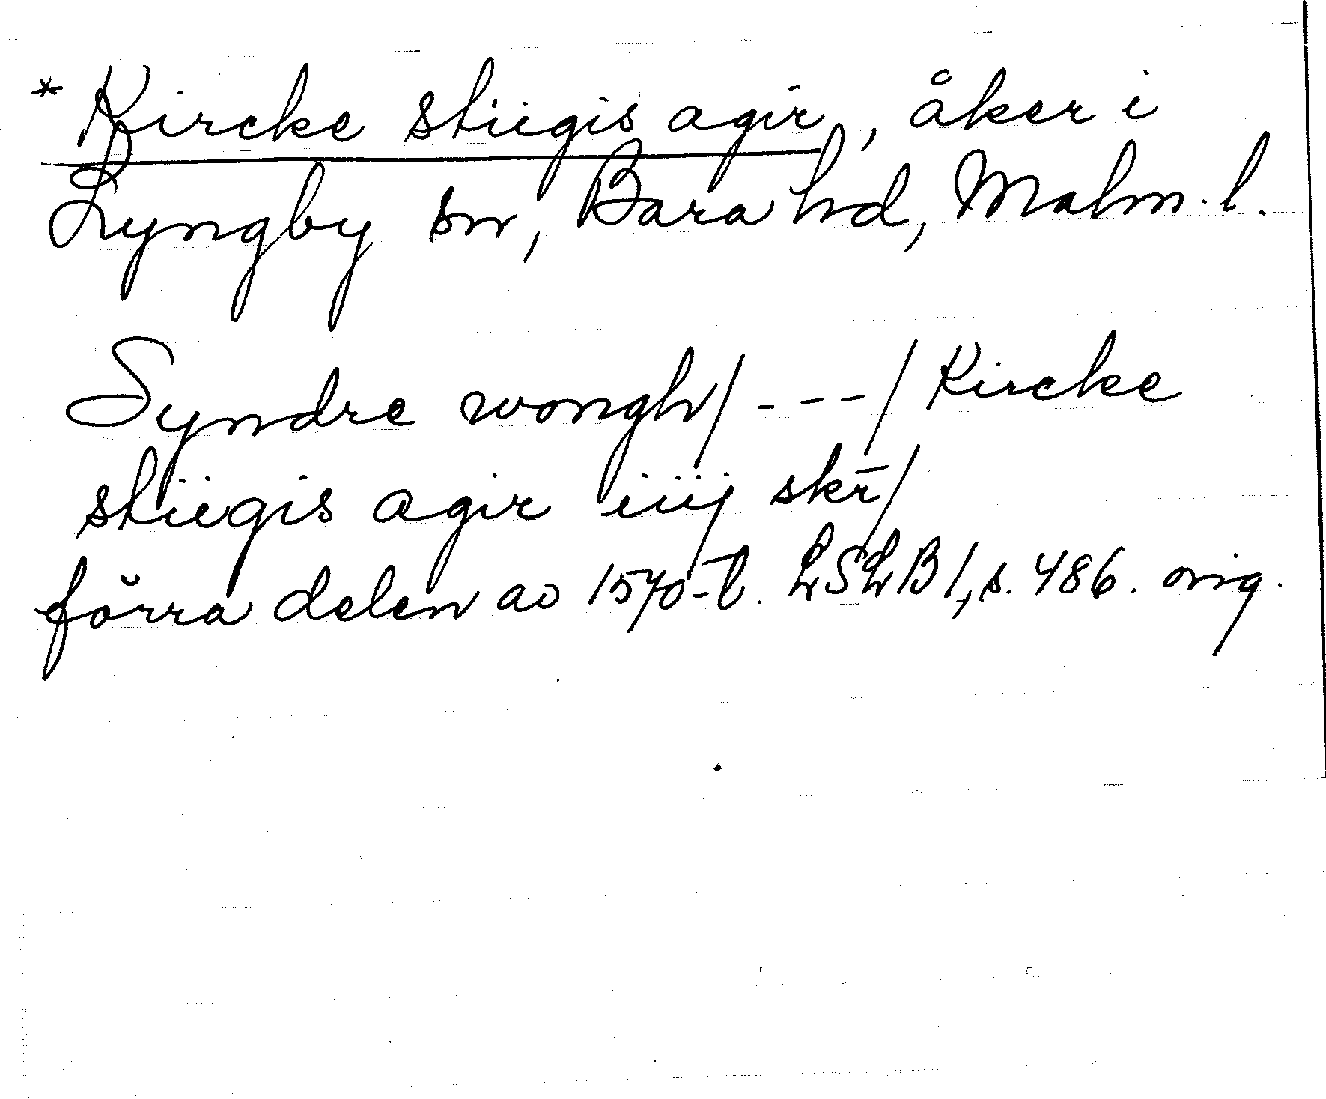 * Kircke stiigis agir, åker i
Lyngby sn, Bara hd, Malm. l.
Syndre wongh/ - - - / Kircke
stiigis agir iiij skr̄/
förra delen av 1570-t. LSLB 1, s. 486. orig.